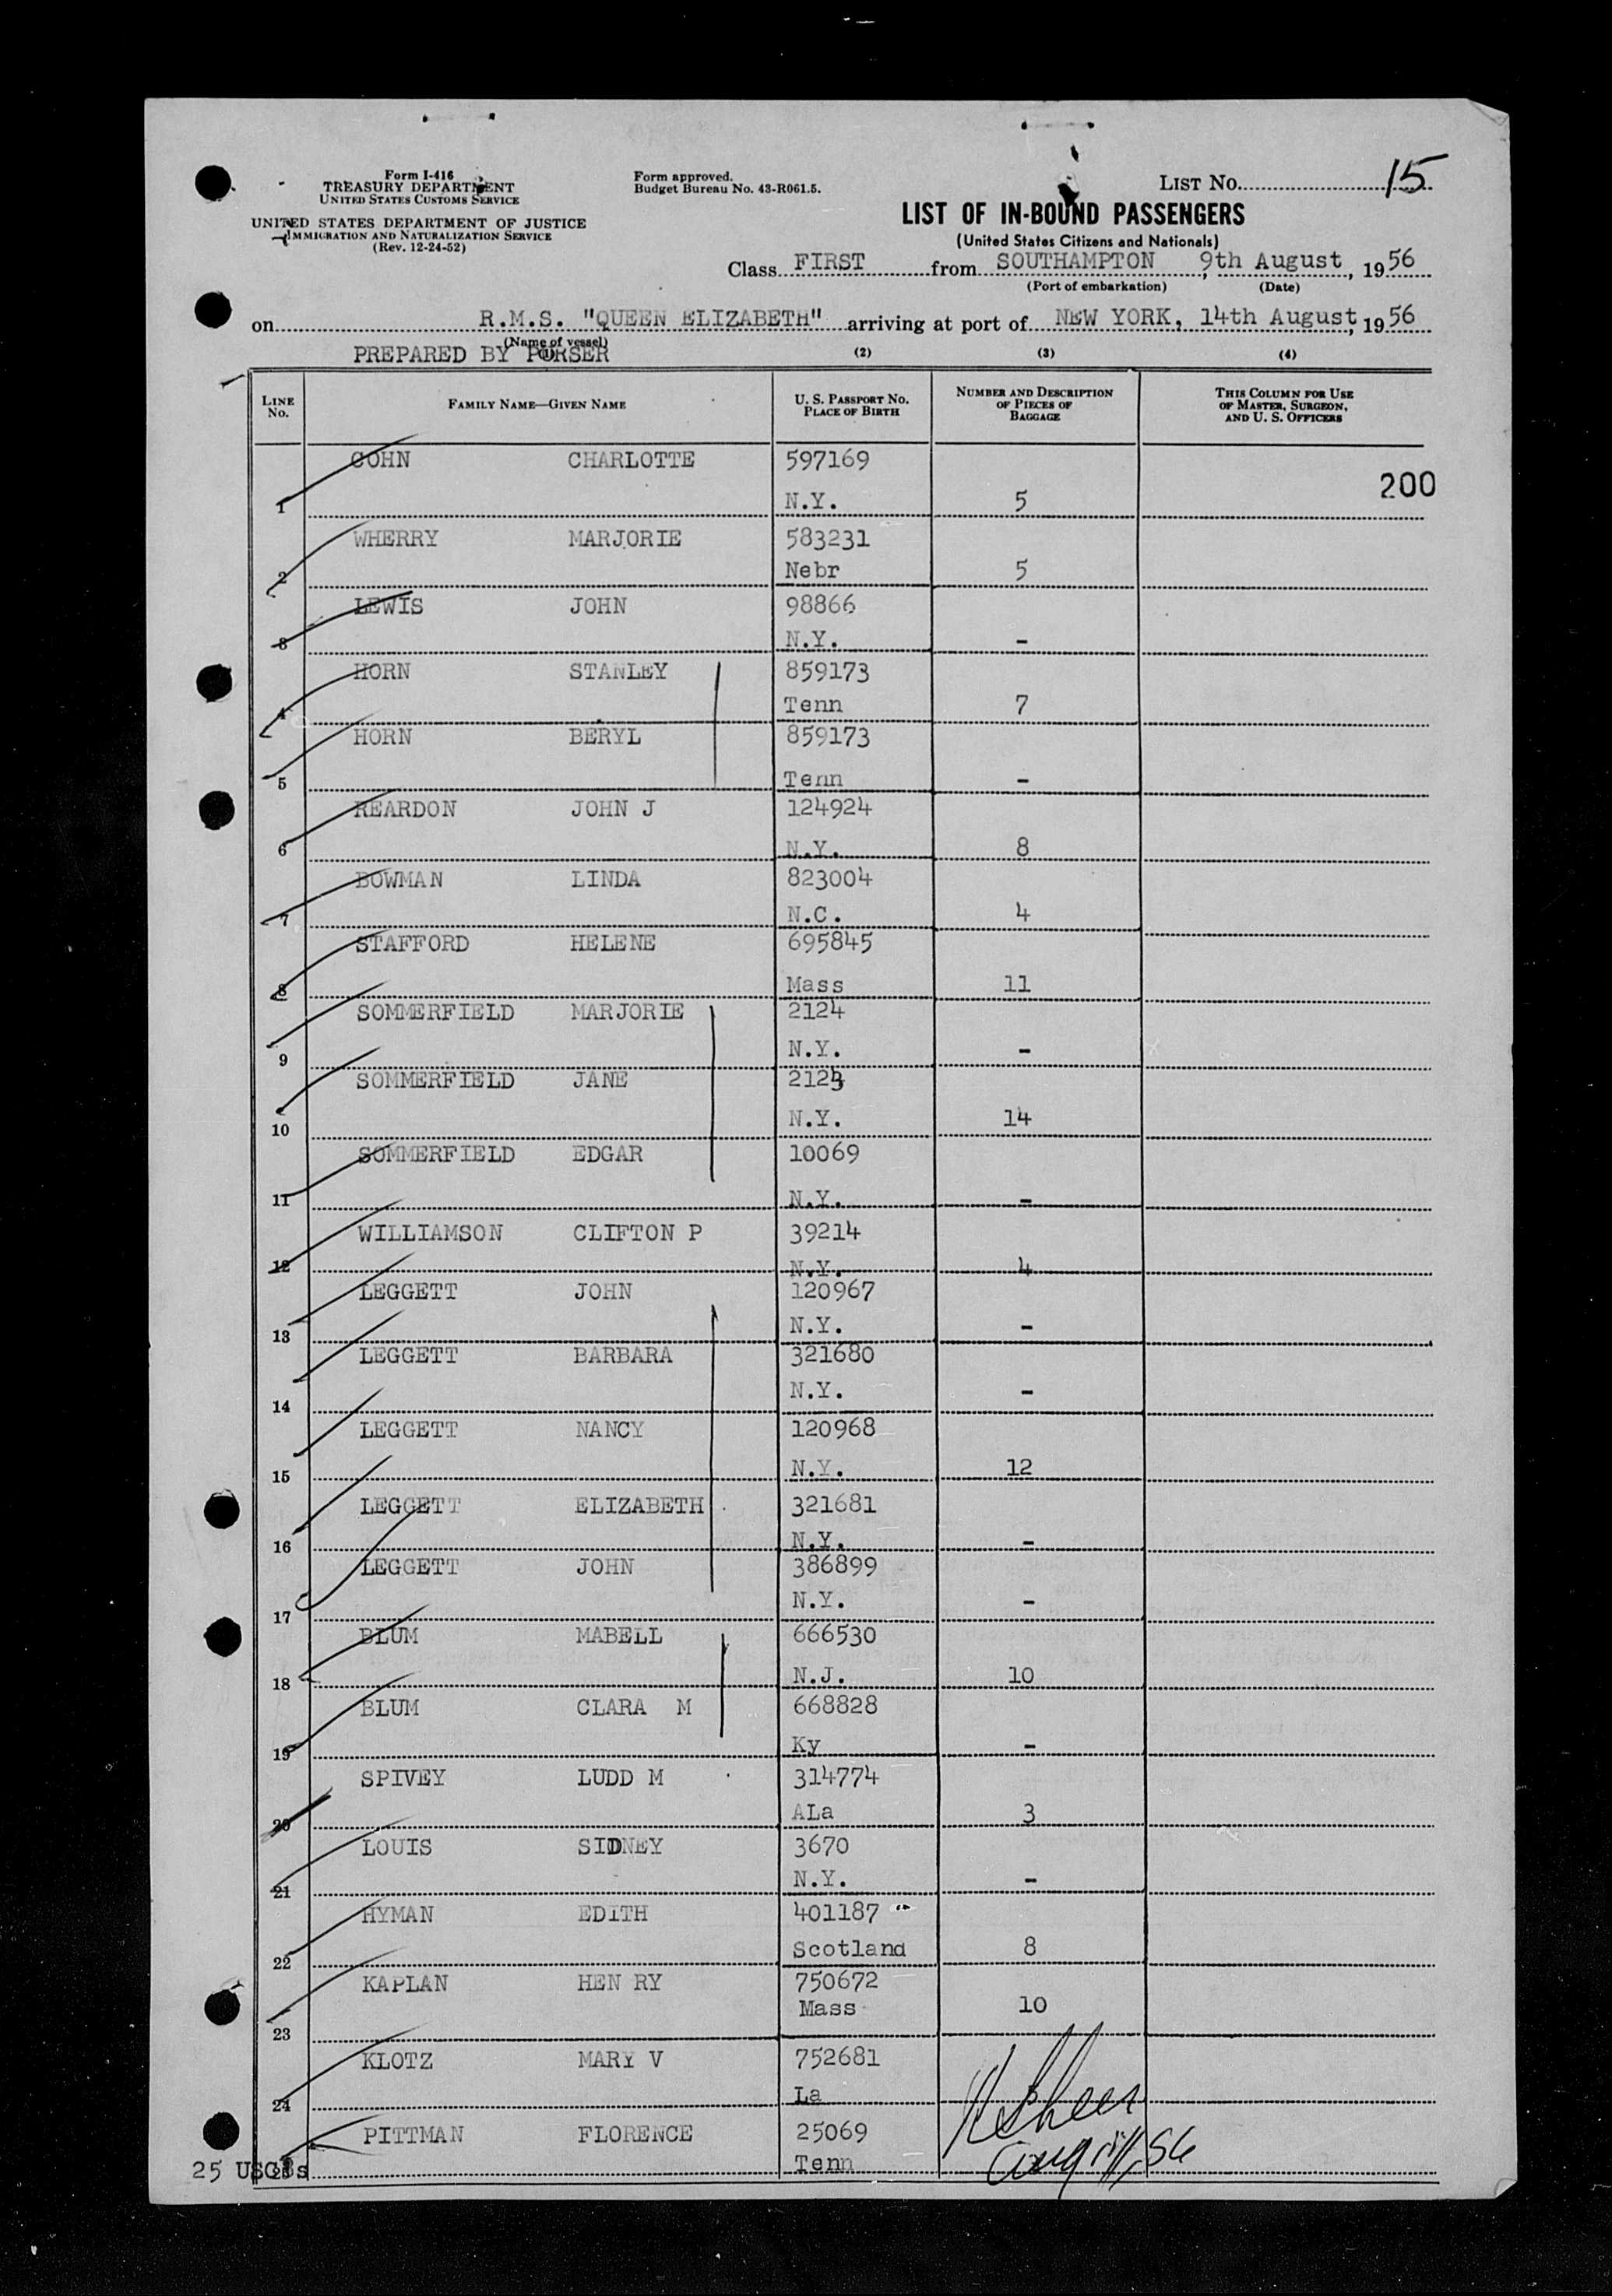 Form I-416
TREASURY DEPARTMENT
UNITED STATES CUSTOMS SERVICE
UNITED STATES DEPARTMENT OF JUSTICE
IMMIGRATION AND NATURALIZATION SERVICE
(Rev. 12-24-52)
Form approved.
Budget Bureau No. 43-R061.5.
LIST No. 15
LIST OF IN-BOUND PASSENGERS
(United States Citizens and Nationals)
Class FIRST from SOUTHAMPTON, 9th August, 1956
(Port of embarkation) (Date)
on R.M.S. "QUEEN ELIZABETH" arriving at port of NEW YORK, 14th August, 1956
(Name of vessel)
PREPARED BY PURSER
(1) (2) (3) (4)
LINE No. FAMILY NAME—GIVEN NAME U. S. PASSPORT NO. PLACE OF BIRTH NUMBER AND DESCRIPTION OF PIECES OF BAGGAGE THIS COLUMN FOR USE OF MASTER, SURGEON, AND U. S. OFFICERS
COHN CHARLOTTE 597169
200
1 N.Y. 5
WHERRY MARJORIE 583231
2 Nebr 5
LEWIS JOHN 98866
3 N.Y. -
HORN STANLEY 859173
4 Tenn 7
HORN BERYL 859173
5 Tenn -
REARDON JOHN J 124924
6 N.Y. 8
BOWMAN LINDA 823004
7 N.C. 4
STAFFORD HELENE 695845
8 Mass 11
SOMMERFIELD MARJORIE 2124
9 N.Y. -
SOMMERFIELD JANE 2123
10 N.Y. 14
SOMMERFIELD EDGAR 10069
11 N.Y. -
WILLIAMSON CLIFTON P 39214
12 N.Y. 4
LEGGETT JOHN 120967
13 N.Y. -
LEGGETT BARBARA 321680
14 N.Y. -
LEGGETT NANCY 120968
15 N.Y. 12
LEGGETT ELIZABETH 321681
16 N.Y. -
LEGGETT JOHN 386899
17 N.Y. -
BLUM MABELL 666530
18 N.J. 10
BLUM CLARA M 668828
19 Ky -
SPIVEY LUDD M 314774
20 ALa 3
LOUIS SIDNEY 3670
21 N.Y. -
HYMAN EDITH 401187
22 Scotland 8
KAPLAN HEN RY 750672
Mass 10
23
KLOTZ MARY V 752681
24 La
PITTMAN FLORENCE 25069
25 USCs Tenn